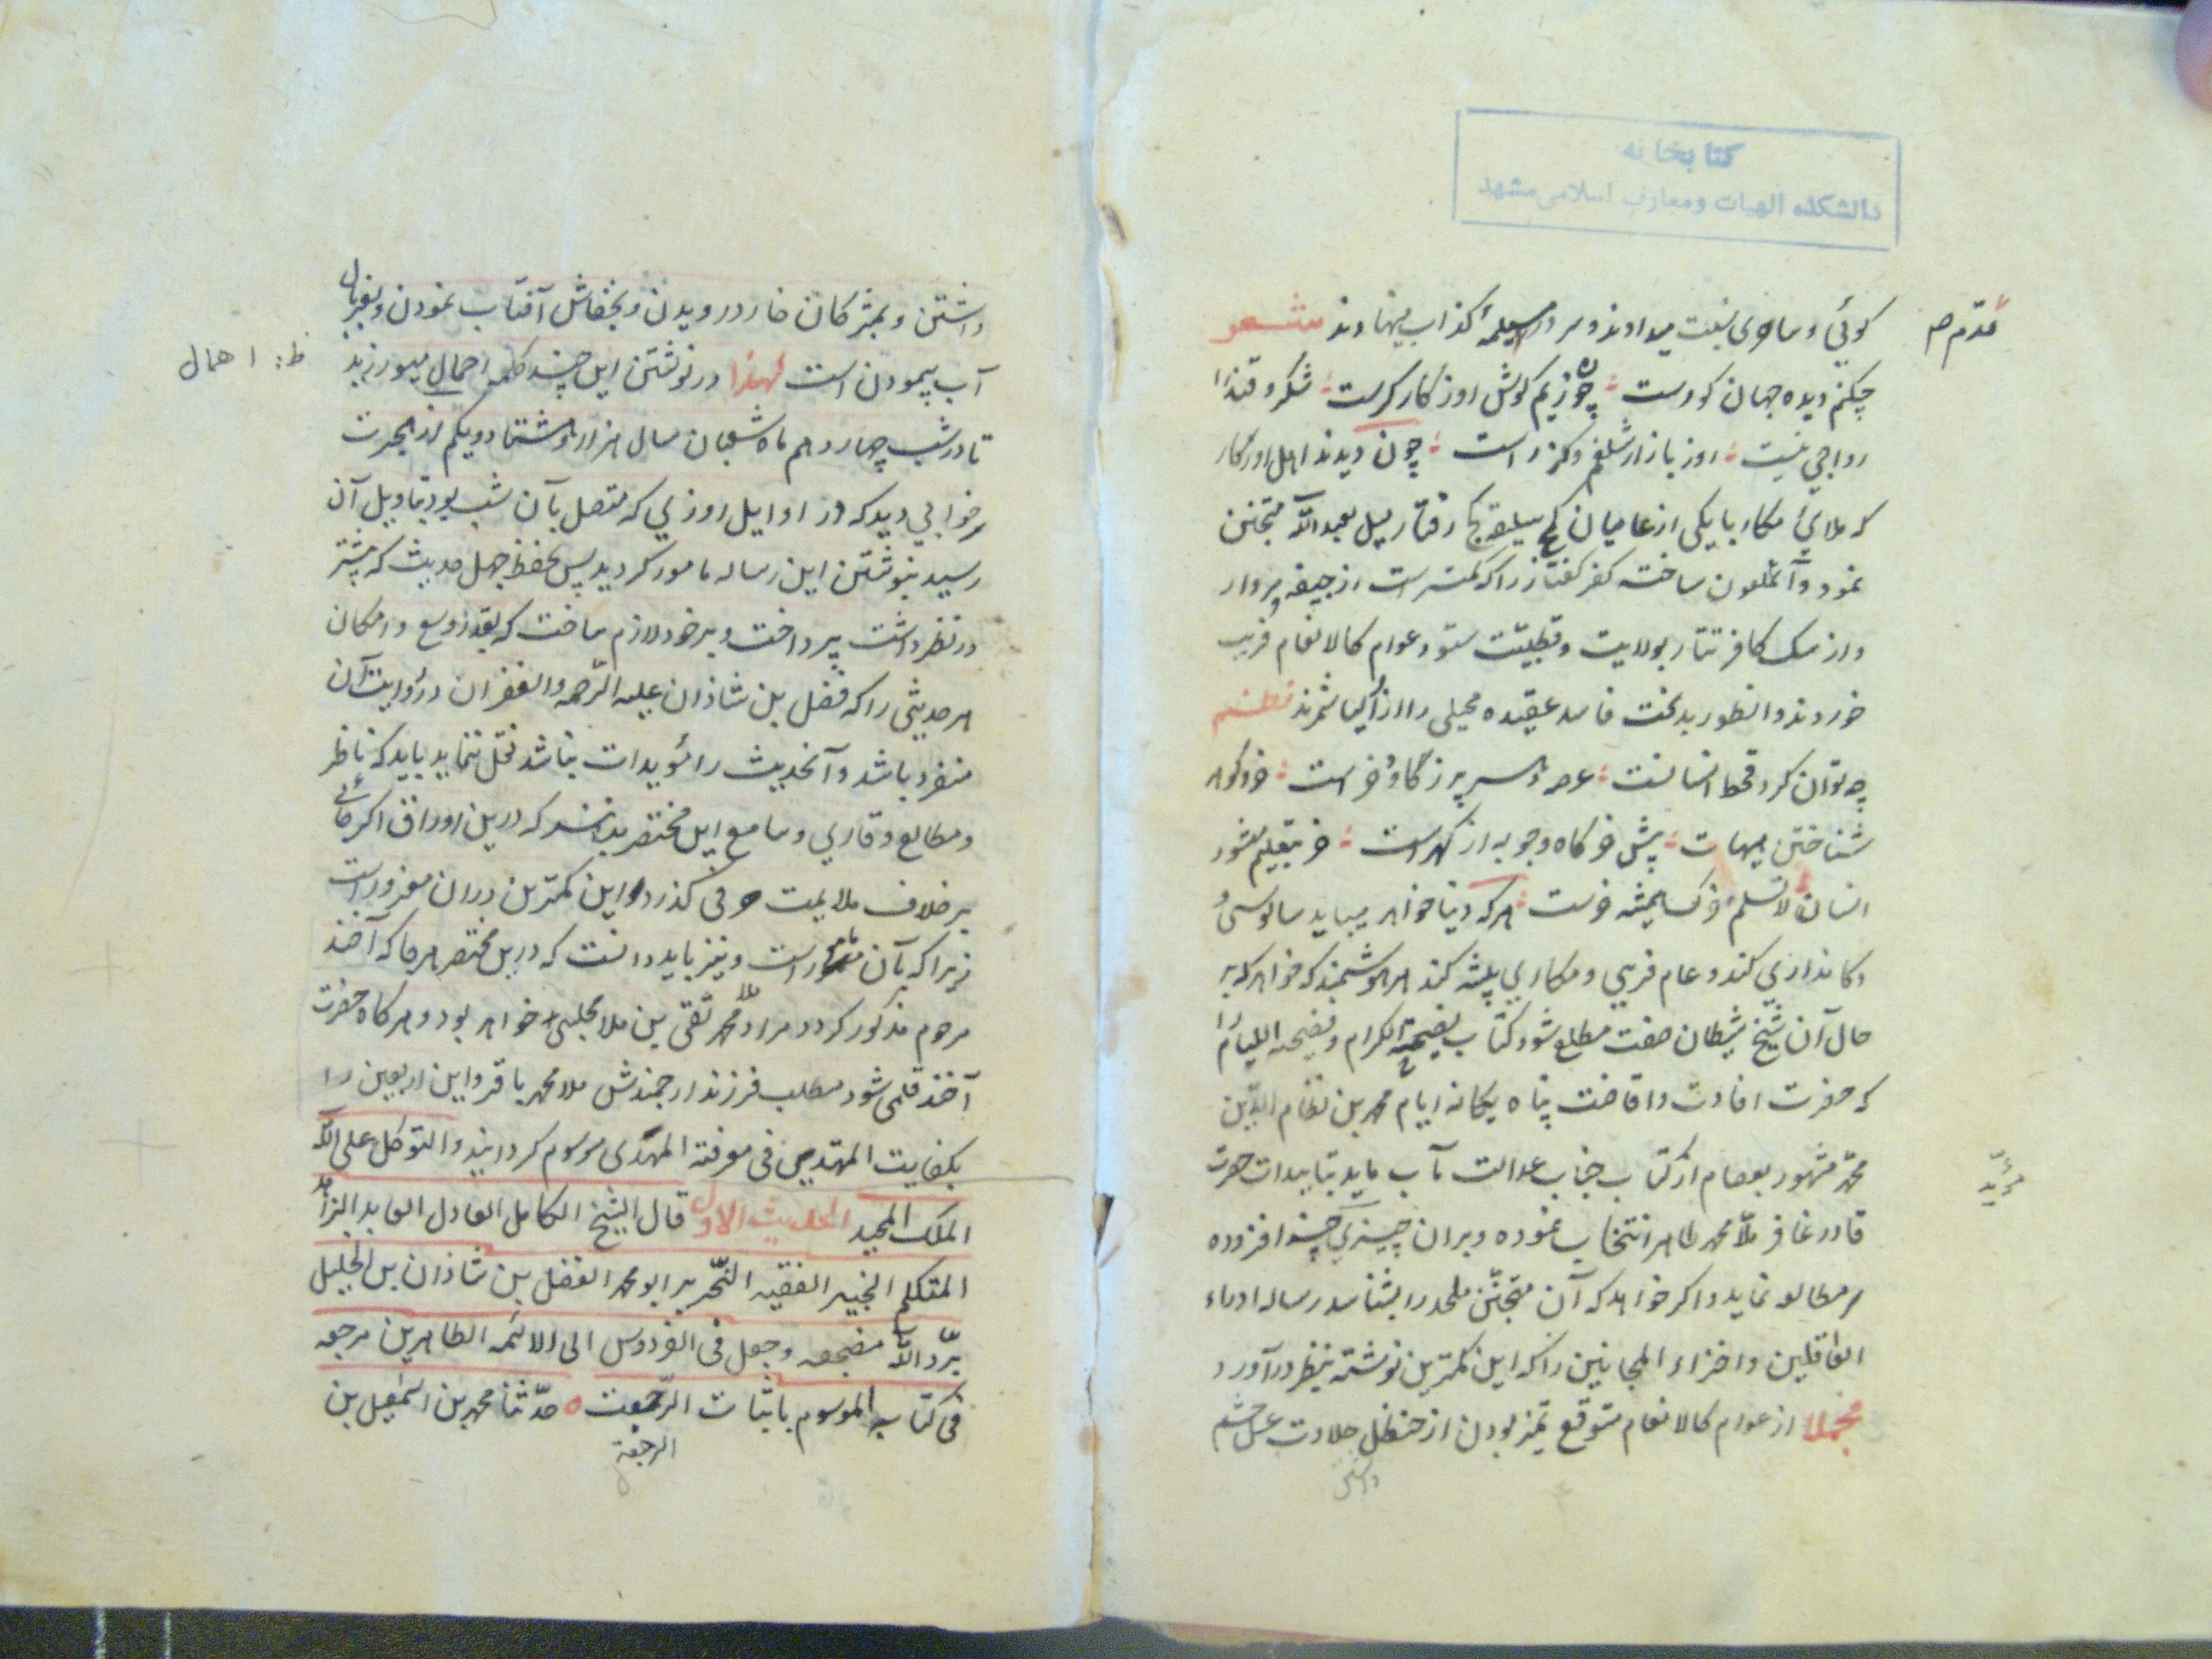 کتابخانه
دانشکده الهیات ومعارف اسلامی مشهد
قدّم صم
کوئي وساوی نسبت میدادند و سر در مسیلمهٔ کذاب مینهادند شعر
چکنم دیده جهان کورست چون زیم کوش روزکار کرست شکر و قند را
رواجي نیست روز بازار شلغم و کزر است چون دیدند اهل روزکار
که ملائي مکار با یکی از عامیان کج سلیقه کج رفتار میل بعبد الله متجنن
نمود و آنملعون ساخته کفر کفتار را که کمترست از جیفه مردار
و از سک کافر تتار بولایت و قطبیّت ستود عوام کالانعام فریب
خوردند و انطور بدبخت فاسد عقیده محیلی را از اولیا شمردند نظم
چه توان کرد قحط انسانست عرصه دهر پر ز کاو و خر است خر و کوهر
شناختن هیهات پیش خر کاه و جو به از کهر است خر بتعلیم نشود
انسان لا نسلم که خر همیشه خرست هرکه دنیا خواهد میباید سالوسی و
دکانداري کند و عام فریبي و مکاري پیشه کند هر هوشمند که خواهد که بر
حال آن شیخ شیطان صفت مطلع شود کتاب نصیحة الکرام و فضیحة اللیام را
که حضرت افادت و افاضت پناه یکانه ایام محمد بن نظام الدین
محمّد مشهور بعصام از کتاب جناب عدالت مآب ماید بتاییدات حضرت
مؤیّد
قادر غافر ملّا محمد طاهر انتخاب نموده و بران چیزي چند افزوده
مطالعه نماید و اکر خواهد که آن متجنّن ملحد را بشناسد رساله ادراء
العاقلین و اخزاء المجانین را که این کمترین نوشته بنظر درآورد
مجملا از عوام کالانعام متوقع تمیز بودن از حنظل حلاوت عسل چشم
داشتن
داشتن و بمژکان خار درویدن و بخفاش آفتاب نمودن و بغربال
آب پیمودن است لهذا در نوشتن این چند کلمه احمال میورزید
ظ: اهمال
تا در شب چهاردهم ماه شعبان سال هزار و هشتاد و یکم از هجرت
خوابي دید که در اوایل روزي که متصل بآن شب بود بتاویل آن
رسید بنوشتن این رساله مامور کردید پس بحفظ چهل حدیث که پیشتر
در نظر داشت پرداخت و بر خود لازم ساخت که بقدر وسع و امکان
هر حدیثی را که فضل بن شاذان علیه الرّحمه والغفران در روایت آن
منفرد باشد و آنحدیث را مؤیدات نباشد نقل ننماید باید که ناظر
و مطالع و قاري و سامع این مختصر بدانند که درین اوراق اکر جائی
بر خلاف ملایمت حرفی کذرد این کمترین دران معذور است
زیرا که بآن مامور است و نیز باید دانست که درین مختصر هرجا که آخند
مرحوم مذکور کردد مراد ملا محمد تقی بن ملا مجلسی خواهد بود و هرکاه حضرت
آخند قلمی شود مطلب فرزند ارجمندش ملا محمد باقر و این اربعین را
بکفایت المهتدی فی معرفة المهدی موسوم کردانید والتوکل علی الله
الملک المجید الحدیث الاول قال الشیخ الکامل العادل العابد الزاهد
المتکلم الخبیر الفقیه النّحریر ابو محمد الفضل بن شاذان بن الجلیل
برّد الله مضجعه وجعل فی الفردوس الی الائمه الطاهرین مرجعه
فی کتابه الموسوم باثبات الرّجعت ه حدّثنا محمد بن اسمعیل بن
الرجعة